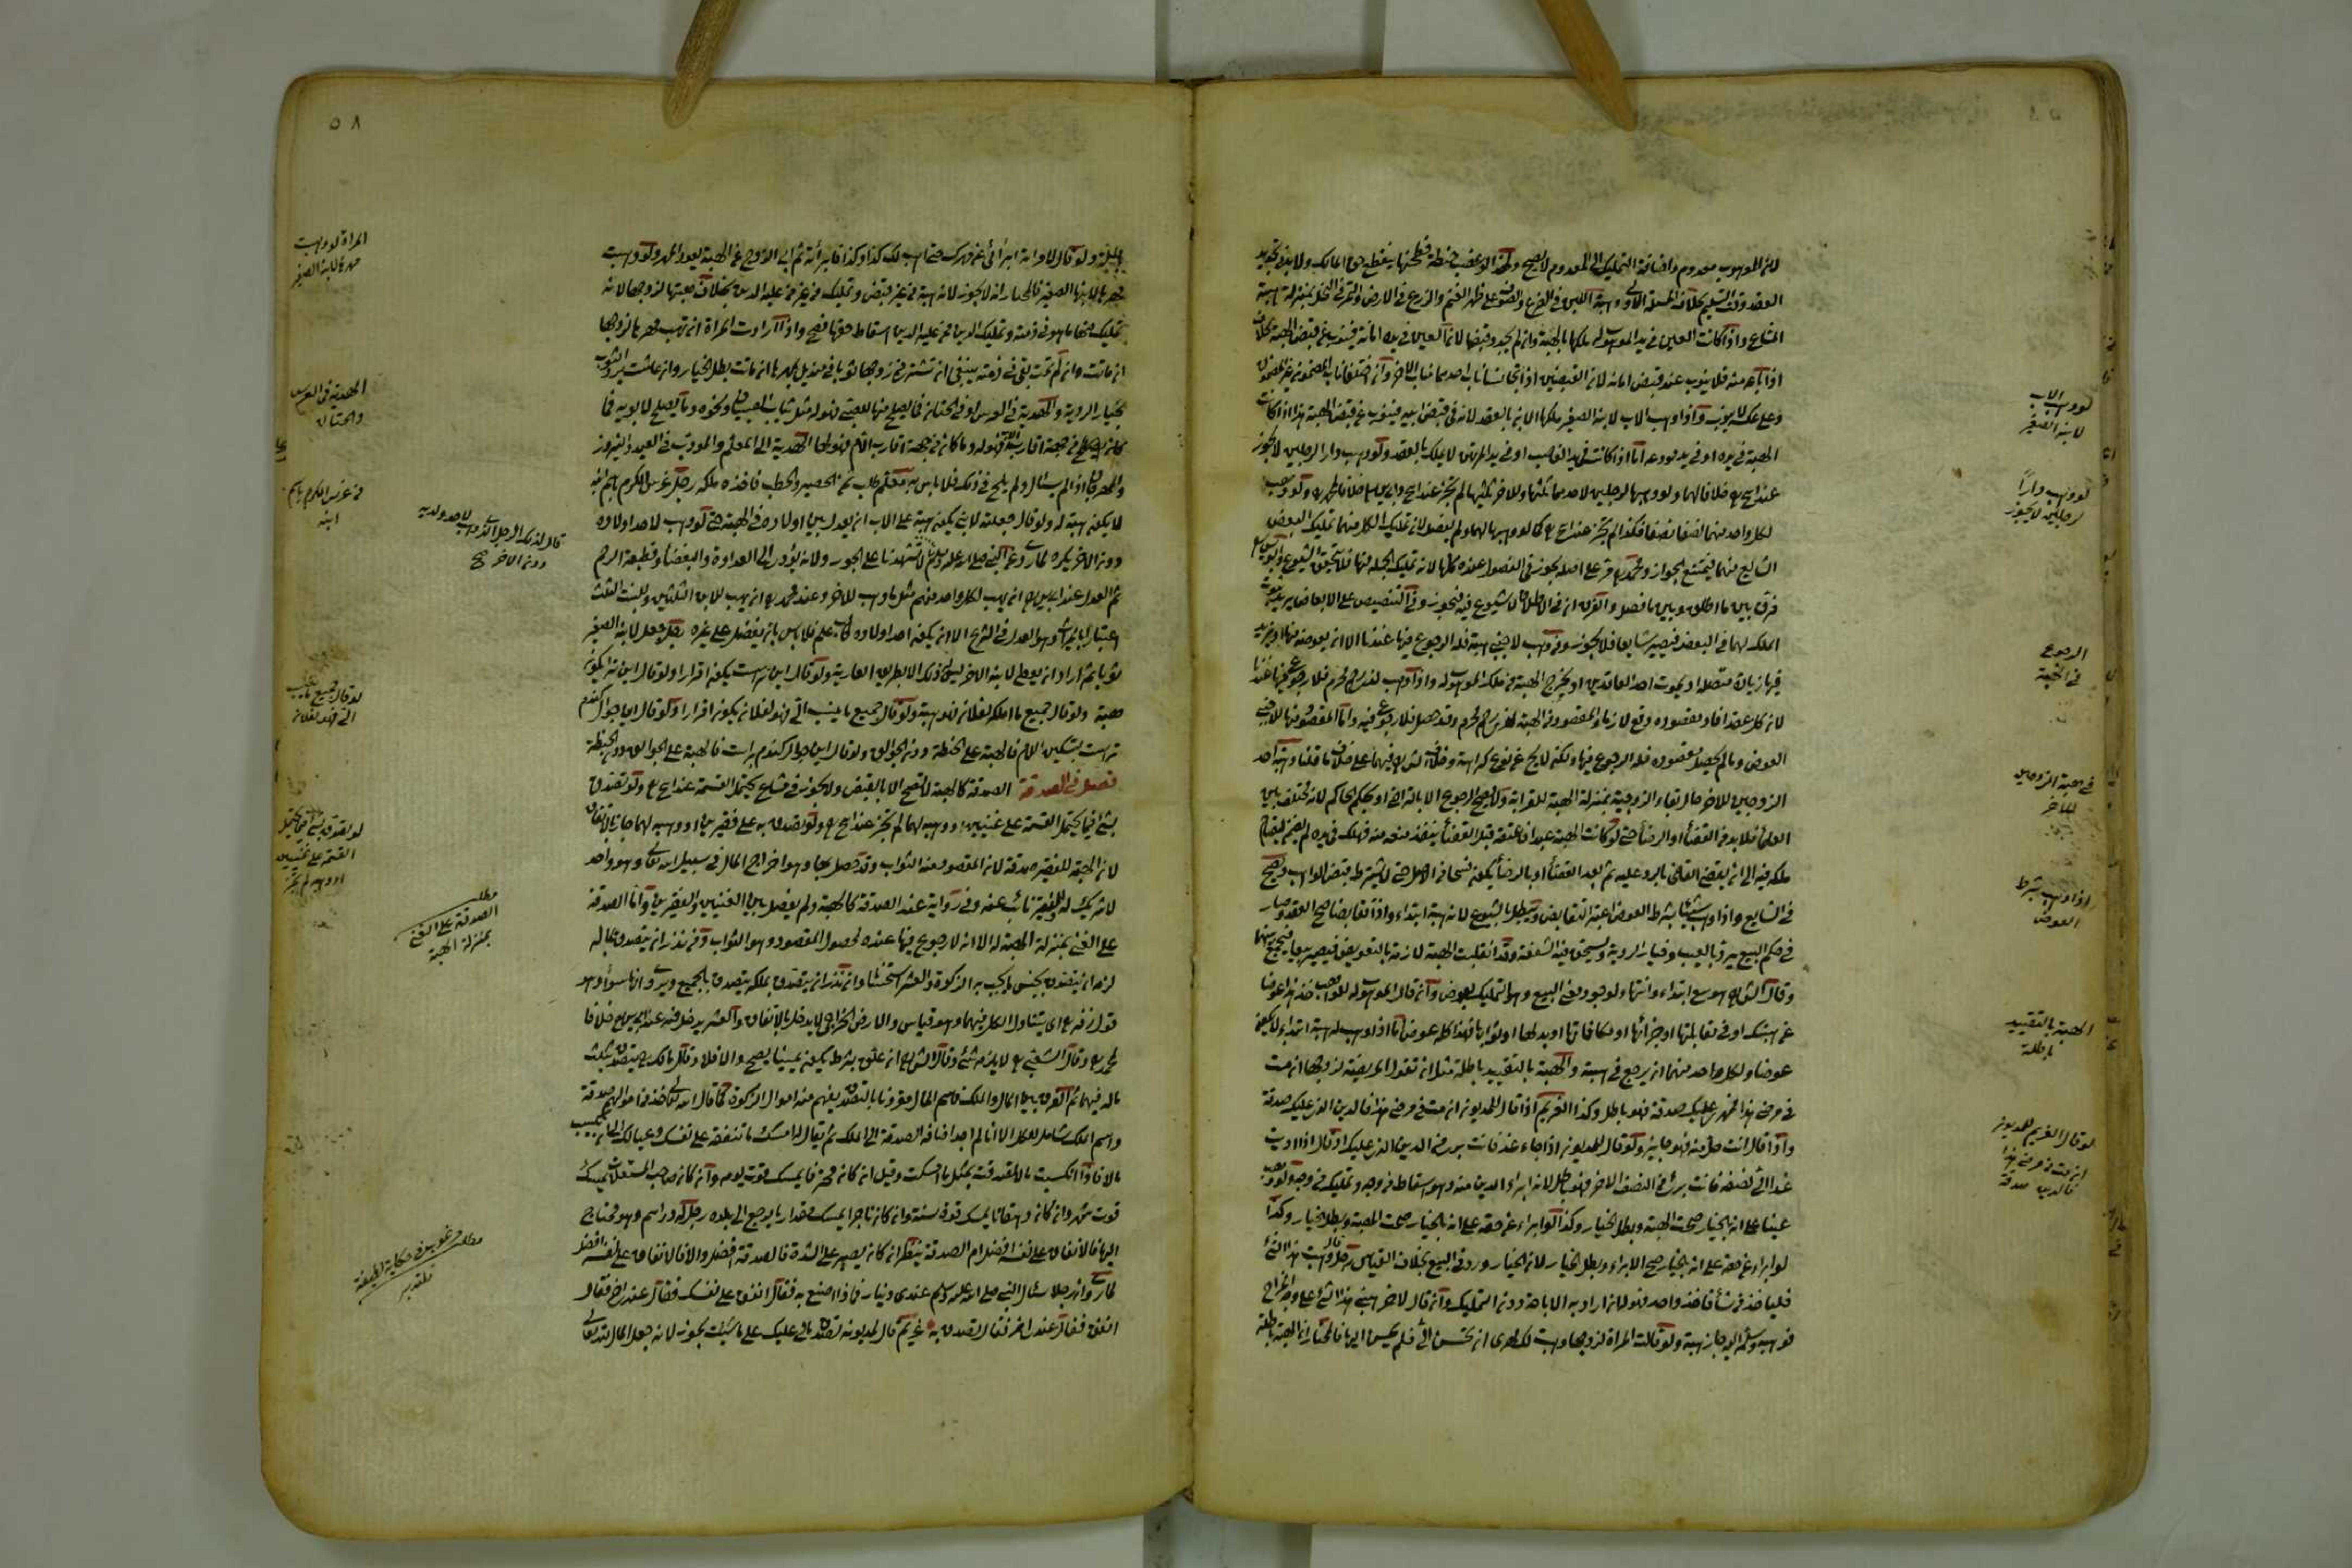 لان الموهوب معدوم واضافة التمليك الى المعدوم لا يصح ولهذا لو غصب حنطة فطحنها ينقطع حق المالك ولا بد من تجديد
العقد وقت التسليم بخلاف المسئلة الاولى وهبة اللبن في الضرع والصوف على ظهر الغنم والزرع في الارض والتمر في النخل بمنزلة هبة
المشاع واذا كانت العين في يد الموهوب له ملكها بالهبة وان لم يجدد قبضها لان العين في يده امانة فينوب عن قبض الهبة بخلاف
اذا باعه منه فلا ينوب عنه قبض امانة لان القبضين اذا تجانسا ناب احدهما مناب الاخر وان اختلفا ناب المضمون عن غير المضمون
وعلى عكسه لا ينوب واذا وهب الاب لابنه الصغير ملكها الابن بالعقد لانه في قبض ابيه فينوب عن قبض الهبة هذا اذا كانت
الهبة في يده او في يد مودعه اما اذا كانت في يد الغاصب او في يد المرتهن لا يملك بالعقد ولو وهب دارا لرجلين لا يجوز
عند ابي ح خلافا لهما ولو وهبها لرجلين لاحدهما ثلثها وللاخر ثلثيها لم يجز عند ابي ح وابي يوسف خلافا لمحمد ولو وهب
لكل واحد منهما نصفا نصفا فكذا لم يجز عند ابي ح كما لو وهبها لهما ولم يفصل لانه تمليك الكل منهما تمليك البعض
الشايع منهما فيمتنع الجواز ومحمد مر على اصله يجوز في الفصول عنده كلها لانه تمليك الجملة منهما فلا يتحقق الشيوع وابو يوسف
فرق بين ما اطلق وبين ما فصل والفرق ان في الاطلاق لا شيوع فيه فيجوز وفي التنصيص على الابعاض يريد ثبوت
الملك لهما في البعض فيصير شايعا فلا يجوز وفي وهب لاجنبي هبة فله الرجوع فيها عندنا الا ان يعوضه منها او يزيد
فيها زيادة متصلة او يموت احد العاقدين او يخرج الهبة من ملك الموهوب له واذا وهب لذي رحم محرم فلا رجوع فيها عندنا
لان كل عقد افاد مقصوده وقع لازما والمقصود من الهبة لذي رحم محرم وقد حصل فلا رجوع فيه واما المقصود منها للاجنبي
العوض وما لم يحصل مقصوده فله الرجوع فيها ولكنه لا يخ عن نوع كراهة وخلاف الش فيهما على خلاف ما قلنا وهبة احد
الزوجين للاخر حال بقاء الزوجية بمنزلة الهبة للقرابة ولا يصح الرجوع الا بالتراضي او بحكم الحاكم لانه مختلف بين
العلماء فلا بد من القضاء او الرضاء حتى لو كانت الهبة عبدا فاعتقه قبل القضاء ينفذ منعه منه فهلك في يده لم يضمن لقيام
ملكه فيه الى ان يقضي القاضي بالرد عليه ثم بعد القضاء او بالرضاء يكون فسخا من الاصل حتى لا يشترط قبض الواهب ويصح
في الشايع واذا وهب شيئا بشرط العوض اعتبر التقابض ويبطل بالشيوع لانه هبة ابتداء واذا تقابضا صح العقد وصار
في حكم البيع يرد بالعيب وخيار الروية ويستحق فيه الشفعة وقد انقلبت الهبة لازمة بالتعويض فيصير بيعا فيجمع بينهما
وقال الش هو بيع ابتداء وانتهاء ولوجود معنى البيع وهو التمليك بعوض وان قال الموهوب له للواهب خذ هذا عوضا
عن هبتك او في مقابلتها او جزائها او مكافاتها او بدلها او ثوابها فهذا كله عوض اما اذا وهب له هبة ابتداء لا يكون
عوضا ولكل واحد منهما ان يرجع في هبته والهبة بالتقييد باطلة مثل ان تقول المريضة لزوجها ان مت
في مرضي هذا فمهري عليك صدقة فهو باطل وكذا الغريم اذا قال للمديون ان مت في مرضي هذا فالدين الذي عليك صدقة
واذا قال انت حل منه فهو جايز ولو قال للمديون اذا جاء غد فانت بري من الدين الذي عليك او قال اذا اديت
غدا الي نصفه فانت بريء من النصف الاخر فهو باطل لانه ابراء الدين منه وهو اسقاط من وجه وتمليك من وجه ولو وهب
عينا على انه بالخيار صحت الهبة وبطل الخيار وكذا لو ابراء عن حقه على انه بالخيار صحت الهبة وبطل الخيار وكذا
لو ابراء عن حقه على انه بالخيار صح الابراء وبطل الخيار لان الخيار ورد في البيع بخلاف القياس رجل قال وهبت هذا الشئ
فليأخذ من شاء فاخذ واحد فهو له لانه اراد به الاباحة دون التمليك وان قال لاخر هبني هذا الشئ على وجه المزاح
فوهب وسلم اليه جاز هبة ولو قالت المراة لزوجها وهبت لك مهري ان تحسن الي فلم يحسن اليها فالمختار ان الهبة باطلة
لو وهب الاب
لابنه الصغير
لو وهب دارا
لرجلين لا يجوز
الرجوع
في الهبة
في هبة الزوجين
للاخر
اذا وهب بشرط
العوض
الهبة بالتقييد
باطلة
لو قال الغريم للمديون
ان مت في مرضي هذا
فالدين صدقة
٥٨
ولو قال لامراته ابرائي عن مهرك حتى اهب لك كذا وكذا فابرأته ثم ابى الزوج عن الهبة يعود المهر ولو وهبت
مهرها لابنها الصغير فالمختار انه لا يجوز لانه هبة من غير قبض وتمليك من غير من عليه الدين بخلاف هبتها لزوجها لانه
تمليك منها ما هو في ذمته وتمليك الدين ممن عليه الدين اسقاط حقها فصح واذا ارادت المراة ان تهب مهرها لزوجها
ان ماتت وان لم تمت بقي في ذمته ينبغي ان تشتري من زوجها ثوبا في منديل بمهرها ان ماتت بطل الخيار وان عاشت ترد الثوب
بخيار الروية والهدية في العرس او في الختان فما يصلح منها للصبي فهو له مثل ثياب الصبيان ونحوه وما يصلح لابويه فما
كان من جهة اقارب الاب فهو له وما كان من جهة اقارب الام فهو لها الهدية الى المعلم والمودب في العيد والنيروز
والمهرجان اذا لم يسئال ولم يلح في ذلك فلا باس به معلم طلب ثمن الحصير والحطب فاخذه ملكه رجل غرس الكرم باسم ابنه
لا يكون هبة له ولو قال جعلته لابني يكون هبة على الاب ان يعدل بين اولاده في الهبة حتى لو وهب لاحد اولاده
دون الاخر يكره لما روي عن النبي صلى الله عليه وسلم لا تشهدنا على الجور ولانه يؤدي الى العداوة والبغضاء وقطيعة الرحم
ثم العدل عند ابي يوسف ان يهب لكل واحد منهم مثل ما وهب للاخر وعند محمد ان يهب للابن الثلثين وللبنت الثلث
اعتبارا بالميراث وهو العدل في الشرع الا ان يكون احد اولاده طالب علم فلا باس بان يفضل على غيره رجل جعل لابنه الصغير
ثوبا ثم اراد ان يعطي لابنه الاخر ليس له ذلك الا بطريق العارية ولو قال اين تراست يكون اقرارا ولو قال اين ترا يكون
هبة ولو قال جميع ما املكه لفلان فهو هبة ولو قال جميع ما ينسب الي فهو لفلان يكون اقرارا ولو قال اين جوال كندم
تراست بتسكين اللام فالهبة على الحنطة دون الجوالق ولو قال اين جوال كندم تراست فالهبة على الجوالق دون الحنطة
فصل في الصدقة الصدقة كالهبة لا تصح الا بالقبض ولا يجوز في مشاع يحتمل القسمة عند ابي ح ولو تصدق
بشئ فيما يحتمل القسمة على غنيين او وهبه لهما لم يجز عند ابي ح ولو تصدق به على فقيرين او وهبه لهما جاز بالاتفاق
لان الهبة للفقير صدقة لان المقصود منه الثواب وقد حصل بها وهو اخراج المال في سبيل الله تعالى وهو واحد
لا شريك له والفقير نائب عنه وفي رواية عنه الصدقة كالهبة ولم يفصل بين الغنيين والفقيرين واما الصدقة
على الغني بمنزلة الهبة له الا انه لا رجوع فيها عنده لحصول المقصود وهو الثواب ومن نذر ان يتصدق بماله
لزمه ان يتصدق بجنس ما يجب به الزكوة والعشر استحسانا وان نذر ان يتصدق بملكه يتصدق بالجميع ويروى انها سواء وهو
قول زفر اي يتناول الكل فيهما وهو قياس والارض الخراجي لا يدخل بالاتفاق والعشر يدخل فيه عند ابي يوسف خلافا
لمحمد وقال الشعبي لا يلزمه شئ وقال الش ان علق بشرط يكون يمينا يصح والا فلا وقال مالك يتصدق بثلث
ماله فيهما ثم الفرق بين المال والملك فاسم المال مقرونا بالتصدق يفهم منه اموال الزكوة كما قال الله تعالى خذ من اموالهم صدقة
واسم الملك شامل للكل الا انا لم نجد اضافة الصدقة الى الملك ثم يقال له امسك ما تنفقه على نفسك وعيالك الى ان تكسب
مالا فاذا اكتسبت مالا تصدقت بمثل ما امسكت وقيل ان كان محترفا يمسك قوت يومه وان كان صاحب المستغلات يمسك
قوت شهر وان كان دهقانا يمسك قوت سنة وان كان تاجرا يمسك مقدار ما يرجع الى بلده رجل له دراهم وهو محتاج
اليها فالانفاق على نفسه افضل ام الصدقة ينظر ان كان يصبر على الشدة فالصدقة افضل والا فالانفاق على نفسه افضل
لما روي ان رجلا سئال النبي صلى الله عليه وسلم عندي دينار فماذا اصنع به فقال انفق على نفسك فقال عندي اخر فقال
انفق فقال عندي اخر فقال تصدق به غريم قال لمديونه تصدق مالي عليك على ما شئت يجوز لانه جعل المال لله تعالى
المراة لو وهبت
مهرها لابنها الصغير
الهدية في العرس
والختان
من غرس الكرم باسم
ابنه
لو قال جميع ما ينسب
الي فهو لفلان
لو تصدق بشئ فيما يحتمل
القسمة على غنيين
او وهبه لم يجز
مطلب
الصدقة على الغني
بمنزلة الهبة